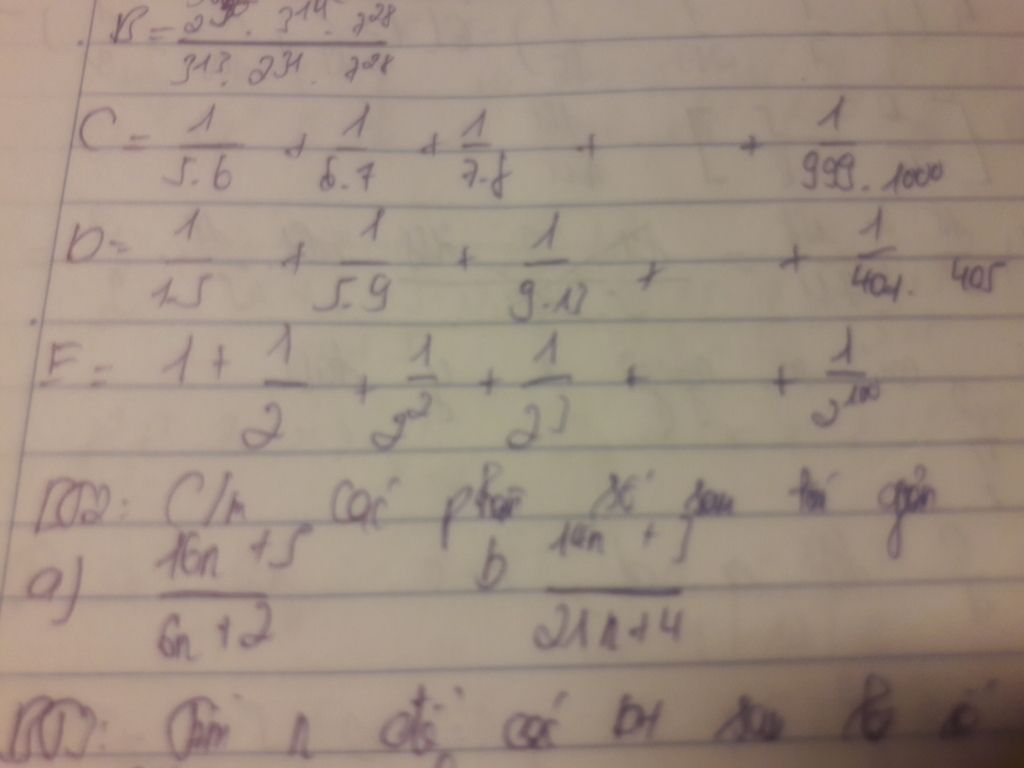 B = 2^30 . 3^14 . 7^28 / 3^13 . 2^31 . 7^28
C = 1/5.6 + 1/6.7 + 1/7.8 + + 1/999.1000
D = 1/1.5 + 1/5.9 + 1/9.13 + + 1/401.405
E = 1 + 1/2 + 1/2^2 + 1/2^3 + + 1/2^100
BT2: C/m các phân số sau tối giản
a) 16n + 5 / 6n + 2 b 14n + 3 / 21n + 4
BT3: Tìm n để các bt sau là số